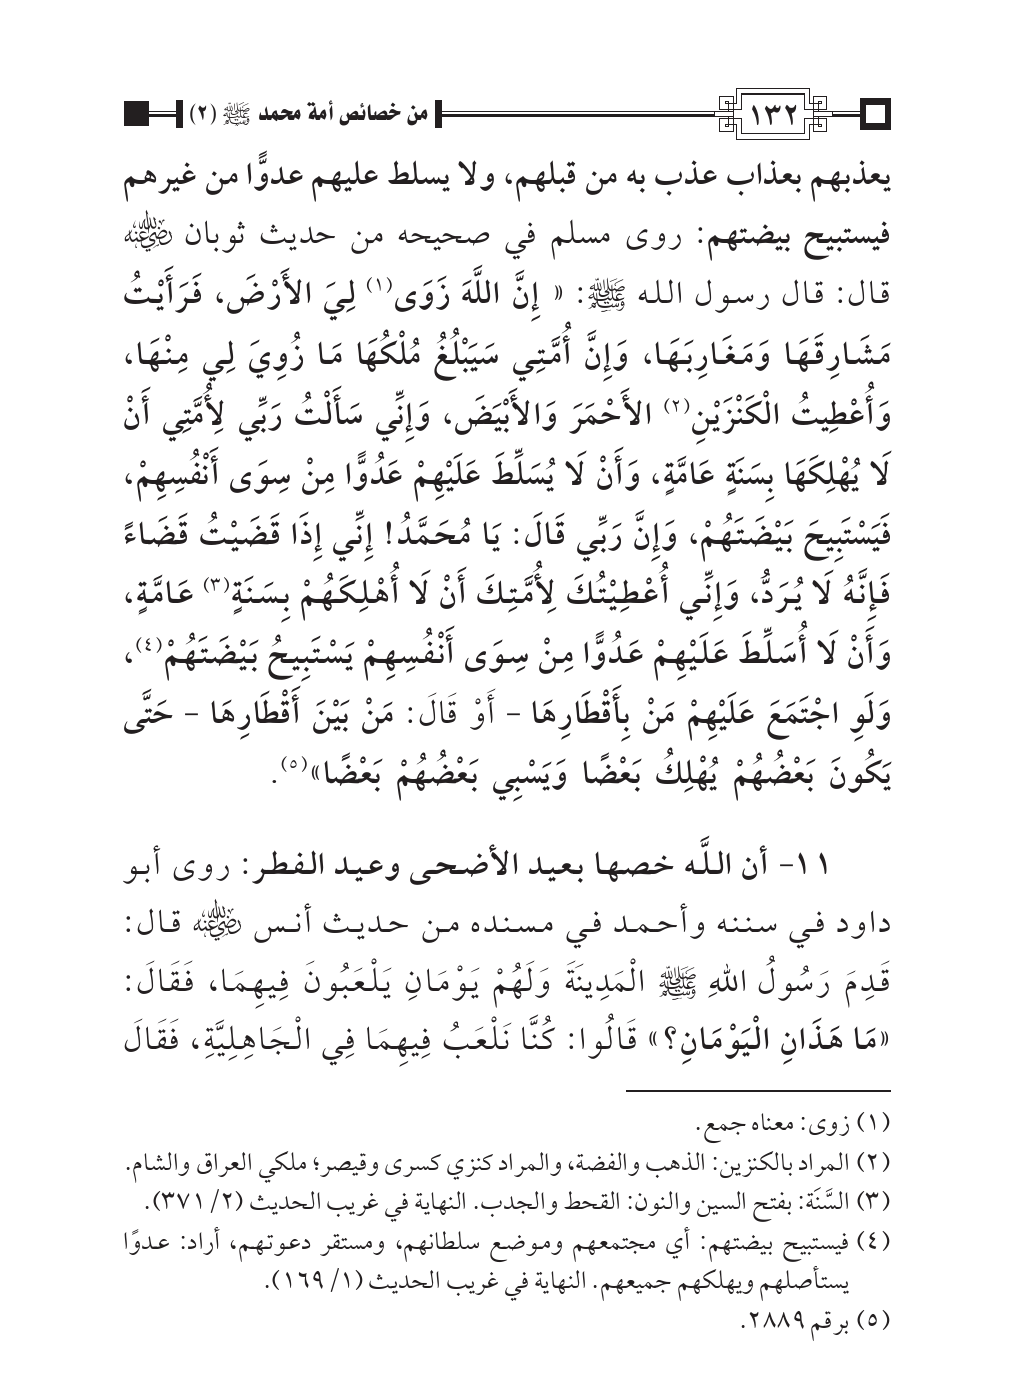 ١٣٢
من خصائص أمة محمد ﷺ (٢)
يعذبهم بعذاب عذب به من قبلهم، ولا يسلط عليهم عدوًّا من غيرهم
فيستبيح بيضتهم: روى مسلم في صحيحه من حديث ثوبان رضي الله عنه
قال: قال رسول الله ﷺ: « إِنَّ اللَّهَ زَوَى(١) لِيَ الأَرْضَ، فَرَأَيْتُ
مَشَارِقَهَا وَمَغَارِبَهَا، وَإِنَّ أُمَّتِي سَيَبْلُغُ مُلْكُهَا مَا زُوِيَ لِي مِنْهَا،
وَأُعْطِيتُ الْكَنْزَيْنِ(٢) الأَحْمَرَ وَالأَبْيَضَ، وَإِنِّي سَأَلْتُ رَبِّي لِأُمَّتِي أَنْ
لَا يُهْلِكَهَا بِسَنَةٍ عَامَّةٍ، وَأَنْ لَا يُسَلِّطَ عَلَيْهِمْ عَدُوًّا مِنْ سِوَى أَنْفُسِهِمْ،
فَيَسْتَبِيحَ بَيْضَتَهُمْ، وَإِنَّ رَبِّي قَالَ: يَا مُحَمَّدُ! إِنِّي إِذَا قَضَيْتُ قَضَاءً
فَإِنَّهُ لَا يُرَدُّ، وَإِنِّي أُعْطِيْتُكَ لِأُمَّتِكَ أَنْ لَا أُهْلِكَهُمْ بِسَنَةٍ(٣) عَامَّةٍ،
وَأَنْ لَا أُسَلِّطَ عَلَيْهِمْ عَدُوًّا مِنْ سِوَى أَنْفُسِهِمْ يَسْتَبِيحُ بَيْضَتَهُمْ(٤)،
وَلَوِ اجْتَمَعَ عَلَيْهِمْ مَنْ بِأَقْطَارِهَا – أَوْ قَالَ: مَنْ بَيْنَ أَقْطَارِهَا – حَتَّى
يَكُونَ بَعْضُهُمْ يُهْلِكُ بَعْضًا وَيَسْبِي بَعْضُهُمْ بَعْضًا»(٥).
١١- أن اللَّه خصها بعيد الأضحى وعيد الفطر: روى أبو
داود في سننه وأحمد في مسنده من حديث أنس رضي الله عنه قال:
قَدِمَ رَسُولُ اللهِ ﷺ الْمَدِينَةَ وَلَهُمْ يَوْمَانِ يَلْعَبُونَ فِيهِمَا، فَقَالَ:
«مَا هَذَانِ الْيَوْمَانِ؟» قَالُوا: كُنَّا نَلْعَبُ فِيهِمَا فِي الْجَاهِلِيَّةِ، فَقَالَ
(١) زوى: معناه جمع.
(٢) المراد بالكنزين: الذهب والفضة، والمراد كنزي كسرى وقيصر؛ ملكي العراق والشام.
(٣) السَّنَة: بفتح السين والنون: القحط والجدب. النهاية في غريب الحديث (٢/ ٣٧١).
(٤) فيستبيح بيضتهم: أي مجتمعهم وموضع سلطانهم، ومستقر دعوتهم، أراد: عدوًا
يستأصلهم ويهلكهم جميعهم. النهاية في غريب الحديث (١/ ١٦٩).
(٥) برقم ٢٨٨٩.